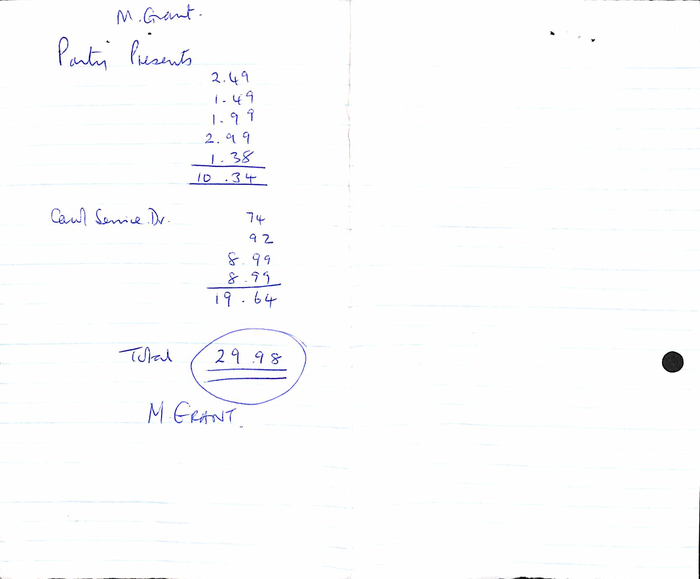 M. Grant.
Party Presents
2.49
1.49
1.99
2.99
1.38
10.34
Carol Service Dr. 74
92
8.99
8.99
19.64
Total 29.98
M GRANT.